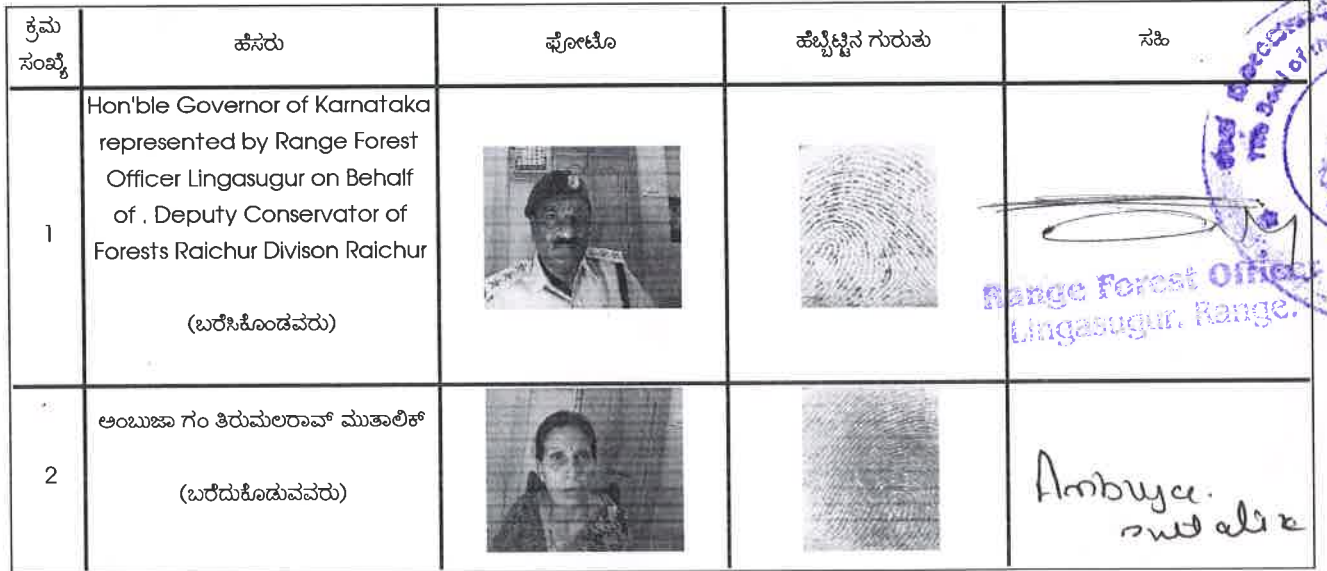 ಕ್ರಮ ಸಂಖ್ಯೆ
ಹೆಸರು
ಫೋಟೊ
ಹೆಬ್ಬೆಟ್ಟಿನ ಗುರುತು
ಸಹಿ
1
Hon'ble Governor of Karnataka
represented by Range Forest
Officer Lingasugur on Behalf
of . Deputy Conservator of
Forests Raichur Divison Raichur
(ಬರೆಸಿಕೊಂಡವರು)
Range Forest Officer
Lingasugur. Range.
2
ಅಂಬುಜಾ ಗಂ ತಿರುಮಲರಾವ್ ಮುತಾಲಿಕ್
(ಬರೆದುಕೊಡುವವರು)
Ambuja.
mutalik